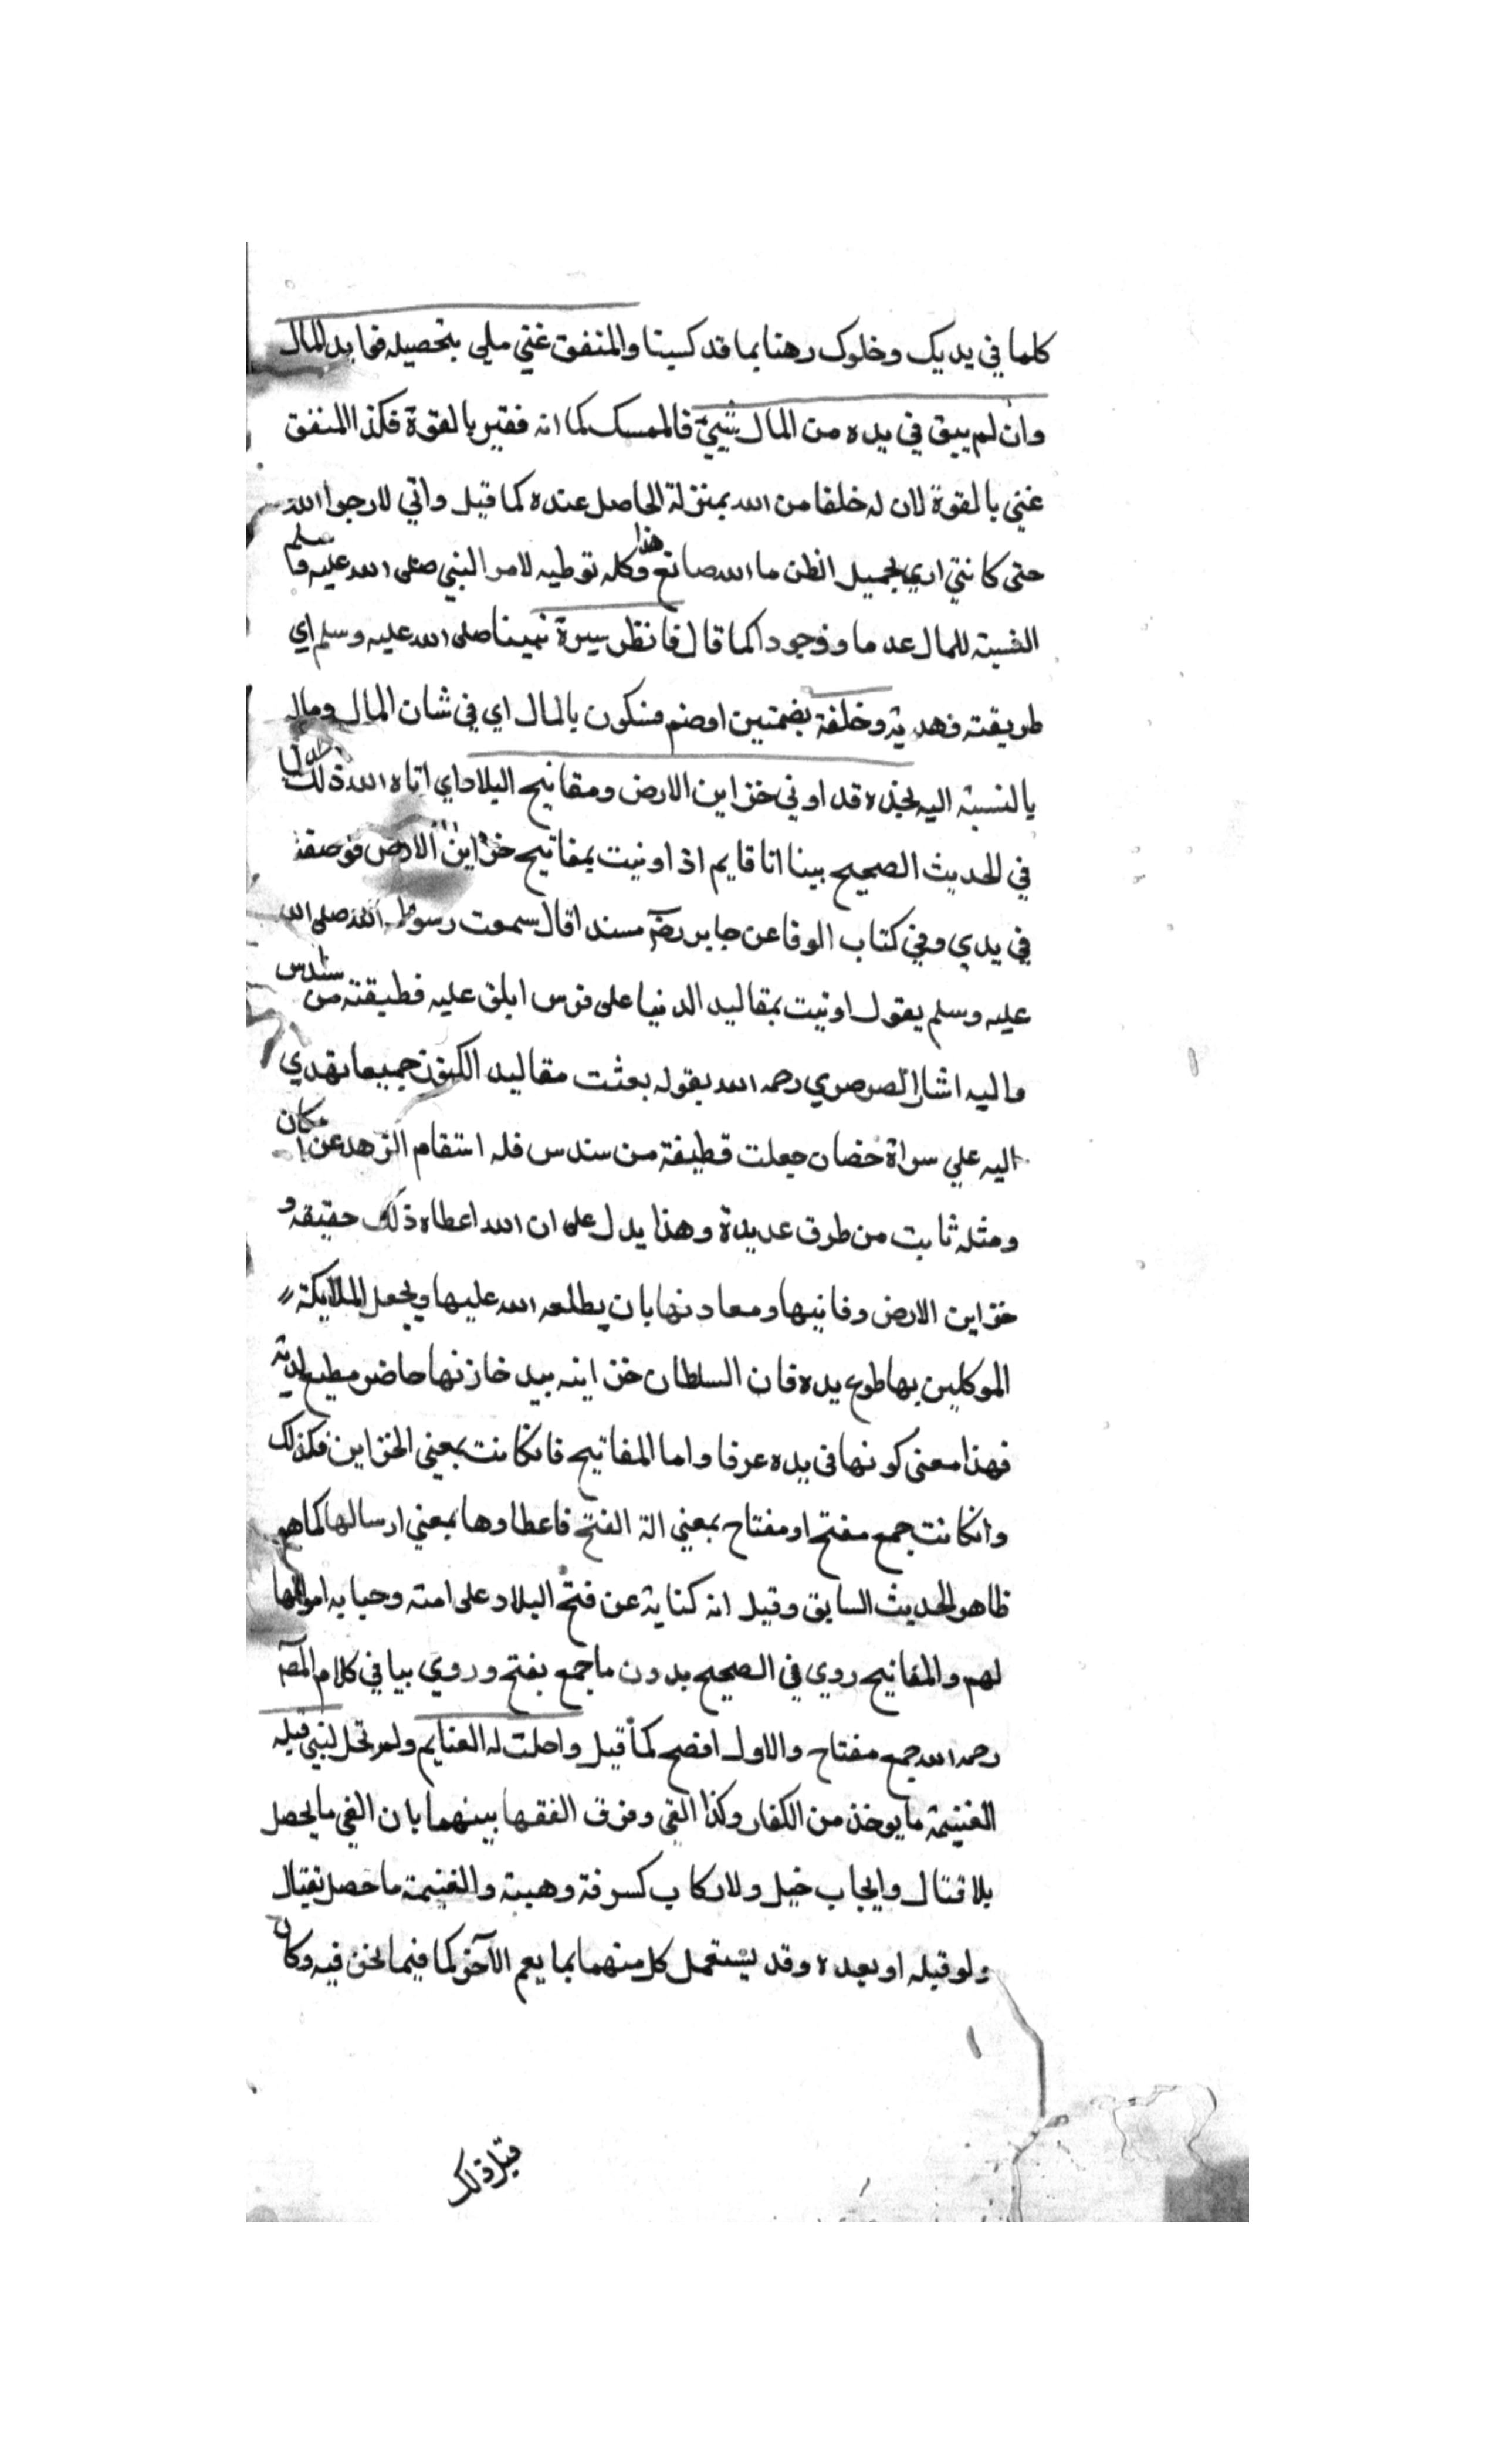 كلما في يديك وخلوك رهنا بما قد كسبتا والمنفق غني ملي بتحصيله فوايد المال
وان لم يبق في يده من المال شيئ فالممسك كما انه فقير بالقوة فكذا المنفق
غني بالقوة لان له خلفا من الله بمنزلة الحاصل عنده كما قيل واني لارجوا الله
حتى كانني اري بجميل الظن ما الله صانع وهذا كله توطيه لامر النبي صلى الله عليه وسلم
النسبة للمال عدما ووجودا كما قال فانظر سيرة نبينا صلى الله عليه وسلم اي
طريقته وهديه وخلقه بضمتين او ضم فسكون بالمال اي في شان المال وماله
بالنسبة اليه بجذه قد اوتي خزاين الارض ومفاتيح البلاد اي اتاه الله ذلك
في الحديث الصحيح بينا انا قايم اذ اوتيت بمفاتيح خزاين الارض فوضعت
في يدي وفي كتاب الوفا عن جابر رضه مسندا قال سمعت رسول الله صلى الله
عليه وسلم يقول اوتيت بمقاليد الدنيا على فرس ابلق عليه قطيفة من سندس
واليه اشار الصرصري رحمه الله بقوله بعثت مقاليد الكنوز جميعا تهدي
اليه علي سراة حصان جعلت قطيفة من سندس فله استقام الزهد عن امكان
ومثله ثابت من طرق عديدة وهذا يدل على ان الله اعطاه ذلك حقيقة و
خزاين الارض دفاينها ومعادنها بان يطلعه الله عليها ويجعل الملايكة
الموكلين بها طوع يده فان السلطان خزاينه بيد خازنها حاضر مطيع لديه
فهذا معنى كونها في يده عرفا واما المفاتيح فانكانت بمعنى الخزاين فكذلك
وانكانت جمع مفتح او مفتاح بمعني الة الفتح فاعطاوها بمعني ارسالها كما هو
ظاهر الحديث السابق وقيل انه كناية عن فتح البلاد على امته وجبايه اموالها
لهم والمفاتيح روي في الصحيح بدون ما جمع بفتح وروي بيا في كلام المصـ
رحمه الله جمع مفتاح والاول افصح كما قيل واحلت له الغنايم ولم تحل لنبي قبله
الغنيمة ما يوخذ من الكفار وكذا الفي وفرق الفقها بينهما بان الفي ما يحصل
بلا قتال وايجاب خيل ولا ركاب كسرقة وهيبة والغنيمة ما حصل بقتال
ولو قبله او بعده وقد يستعمل كل منهما بما يعم الآخر كما فيما نحن فيه وكان
قبل ذلك